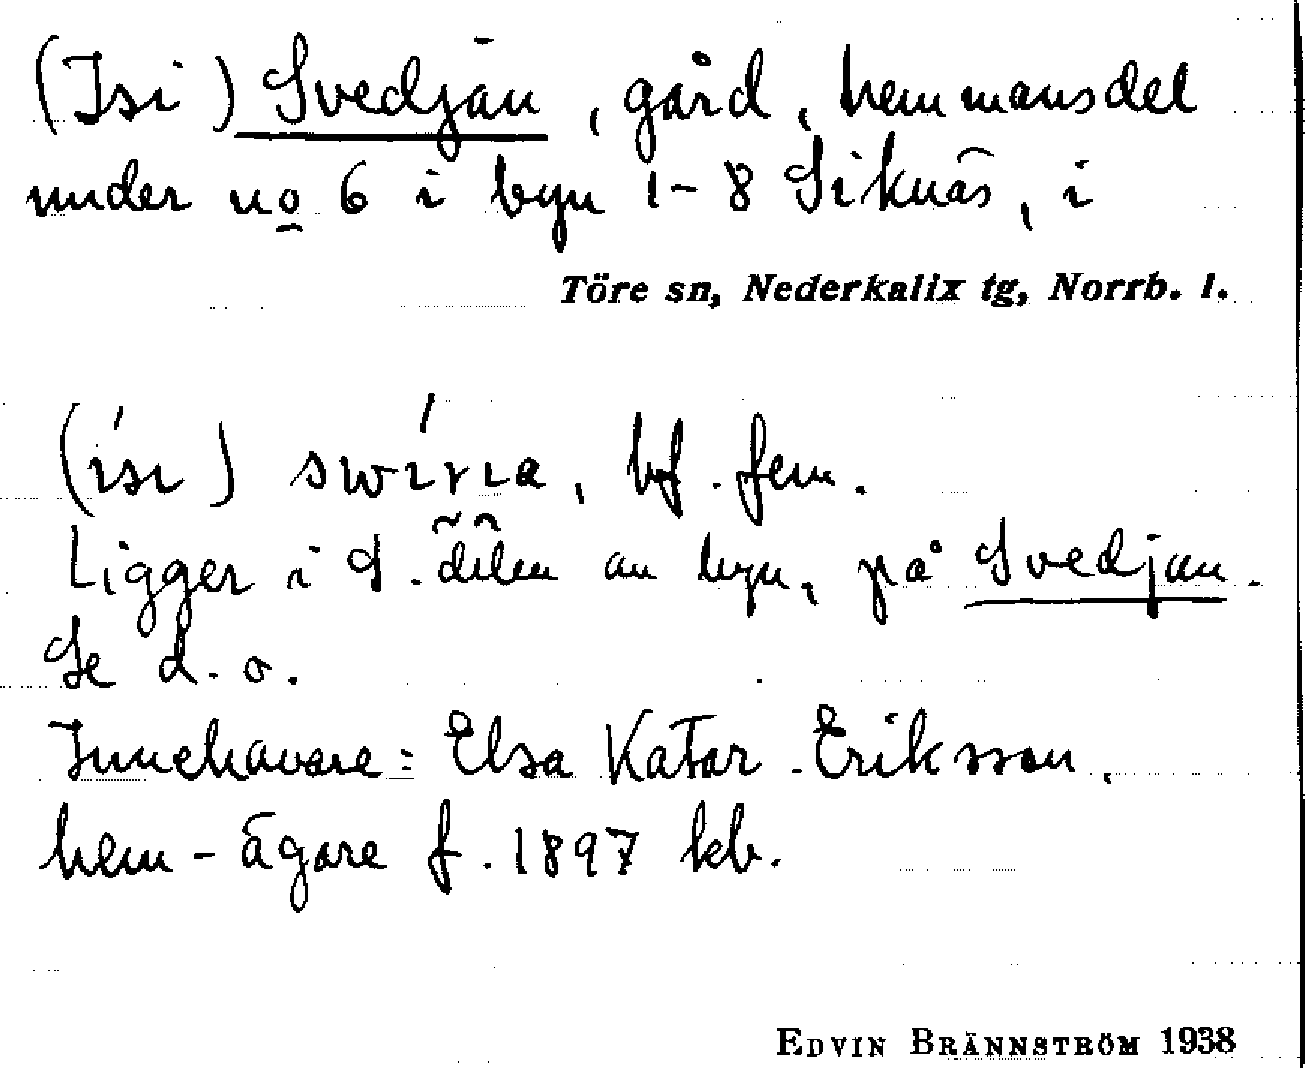 (Isi) Svedjan, gård, hemmansdel
under no 6 i byn 1-8 Siknäs, i
Töre sn, Nederkalix tg, Norrb. l.
(ísı) swı́rıa, bf. fem.
Ligger i S. delen av byn, på Svedjan.
Se d. o.
Innehavare: Elsa Katar. Eriksson,
hem-ägare f. 1897 kb.
EDVIN BRÄNNSTRÖM 1938